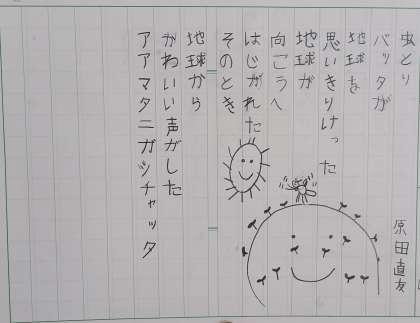 虫とり
バッタが
地球を
思いきりけった
地球が
向こうへ
はじかれた
そのとき
地球から
かわいい声がした
アアマタニガッチャッタ
原田直友